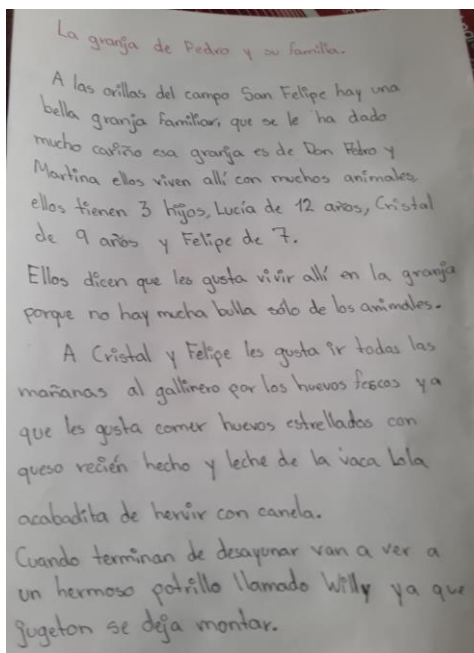 La granja de Pedro y su familia.
A las orillas del campo San Felipe hay una
bella granja familiar, que se le ha dado
mucho cariño esa granja es de Don Pedro y
Martina ellos viven allí con muchos animales,
ellos tienen 3 hijos, Lucía de 12 años, Cristal
de 9 años y Felipe de 7.
Ellos dicen que les gusta vivir allí en la granja
porque no hay mucha bulla sólo de los animales.
A Cristal y Felipe les gusta ir todas las
mañanas al gallinero por los huevos fescos ya
que les gusta comer huevos estrellados con
queso recién hecho y leche de la vaca Lola
acabadita de hervir con canela.
Cuando terminan de desayunar van a ver a
un hermoso potrillo llamado Willy ya que
jugeton se deja montar.